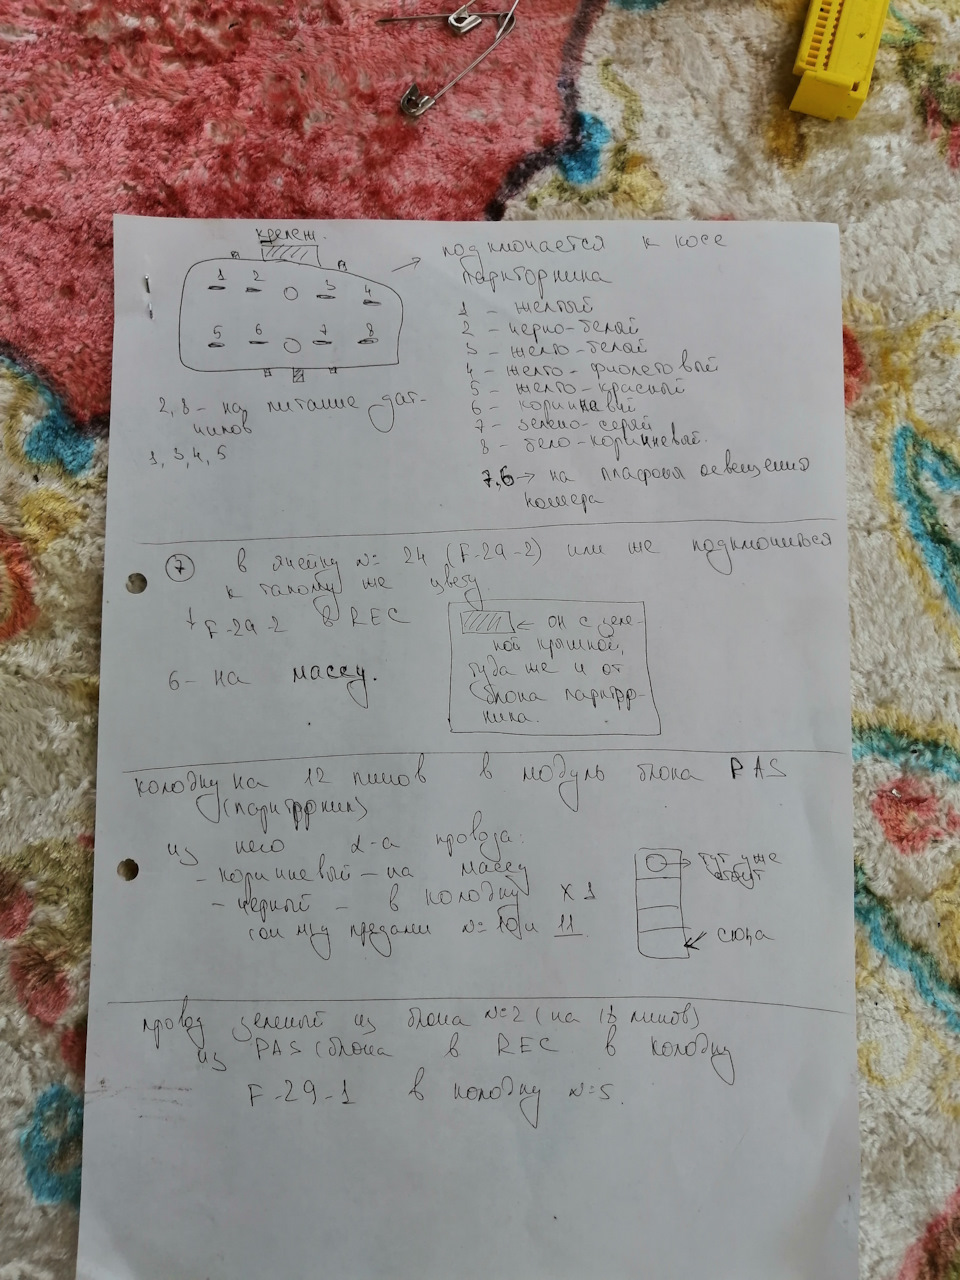 крепеж.
1 2 3 4
5 6 7 8
подключается к косе
парктроника
1 - желтый
2 - черно-белый
3 - желто-белый
4 - желто-фиолетовый
5 - желто-красный
6 - коричневый
7 - зелено-серый
8 - бело-коричневый.
2, 8 - на питание дат-
чиков
1, 3, 4, 5
7,6 → на плафоны освещения
номера
7 в ячейку № 24 (F-29-2) или же подключиться
к такому же цвету
F-29-2 в REC
6 - на массу.
← он с зеле-
ной крышкой,
туда же и от
блока парктро-
ника.
колодку на 12 пинов в модуль блока PAS
(парктроник)
из него 2-а провода:
- коричневый - на массу
- черный - в колодку X1
№ 10 и 11
→ тут уже
сюда
провод зеленый из блока №2 (на 18 пинов)
из PAS (блока в REC в колодку
F-29-1 в колодку №5.